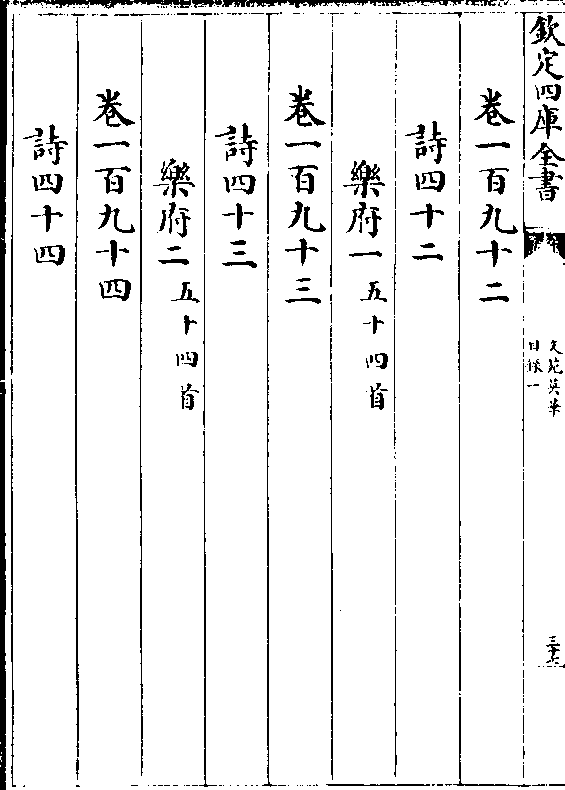 欽定四庫全書
文苑英華
目錄一
三十七
卷一百九十二
詩四十二
樂府一五十四首
卷一百九十三
詩四十三
樂府二五十四首
卷一百九十四
詩四十四